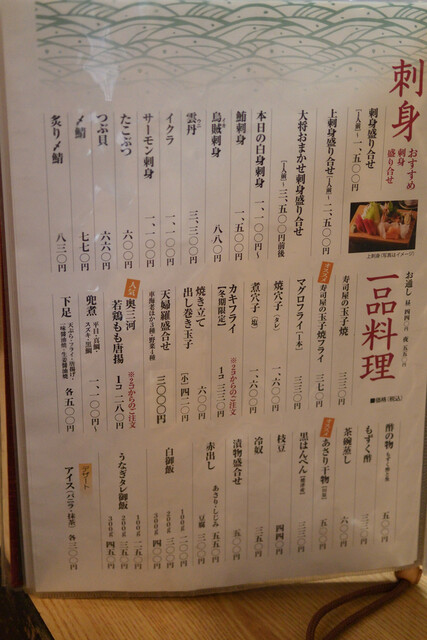 刺身
おすすめ
刺身
盛り合せ
上刺身(写真はイメージ)
刺身盛り合せ
(1人前)一、五〇〇円
上刺身盛り合せ(1人前)二、五〇〇円
大将おまかせ刺身盛り合せ
(1人前)〜三、五〇〇円前後
本日の白身刺身 一、一〇〇円〜
鮪刺身 一、五〇〇円
烏賊刺身 八八〇円
雲丹 三、三〇〇円
イクラ 一、一〇〇円
サーモン刺身 一、一〇〇円
たこぶつ 六〇〇円
つぶ貝 六六〇円
〆鯖 七七〇円
炙り〆鯖 八三〇円
一品料理
■価格(税込)
寿司屋の玉子焼 三三〇円
オススメ
寿司屋の玉子焼フライ 三七〇円
マグロフライ[1本] 三三〇円
焼穴子(タレ) 一、六〇〇円
煮穴子(塩) 一、六〇〇円
カキフライ
[冬期限定] 1コ 三三〇円
※2コからのご注文
焼き立て
出し巻き玉子 六〇〇円
[小]四二〇円
天婦羅盛合せ 三〇〇〇円
車海老・ほか2種・野菜4種
人気
奥三河
若鶏もも唐揚 1コ二八〇円
※2コからのご注文
兜煮 平目・真鯛
スズキ・黒鯛 一、一〇〇円〜
下足 天ぷら・フライ・唐揚げ・
味醤油焼・生姜醤油焼 各五〇〇円
酢の物 五〇〇円
もずく酢 三三〇円
茶碗蒸し 六〇〇円
オススメ
あさり干物 五五〇円
黒はんぺん 三三〇円
枝豆 四四〇円
冷奴 三五〇円
漬物盛合せ 五〇〇円
赤出し あさり・しじみ 五五〇円
豆腐 三三〇円
白御飯 100g 二〇〇円
200g 三〇〇円
300g 四〇〇円
うなぎタレ御飯 100g 二五〇円
200g 三五〇円
300g 四五〇円
デザート
アイス(バニラ・抹茶) 各三〇〇円